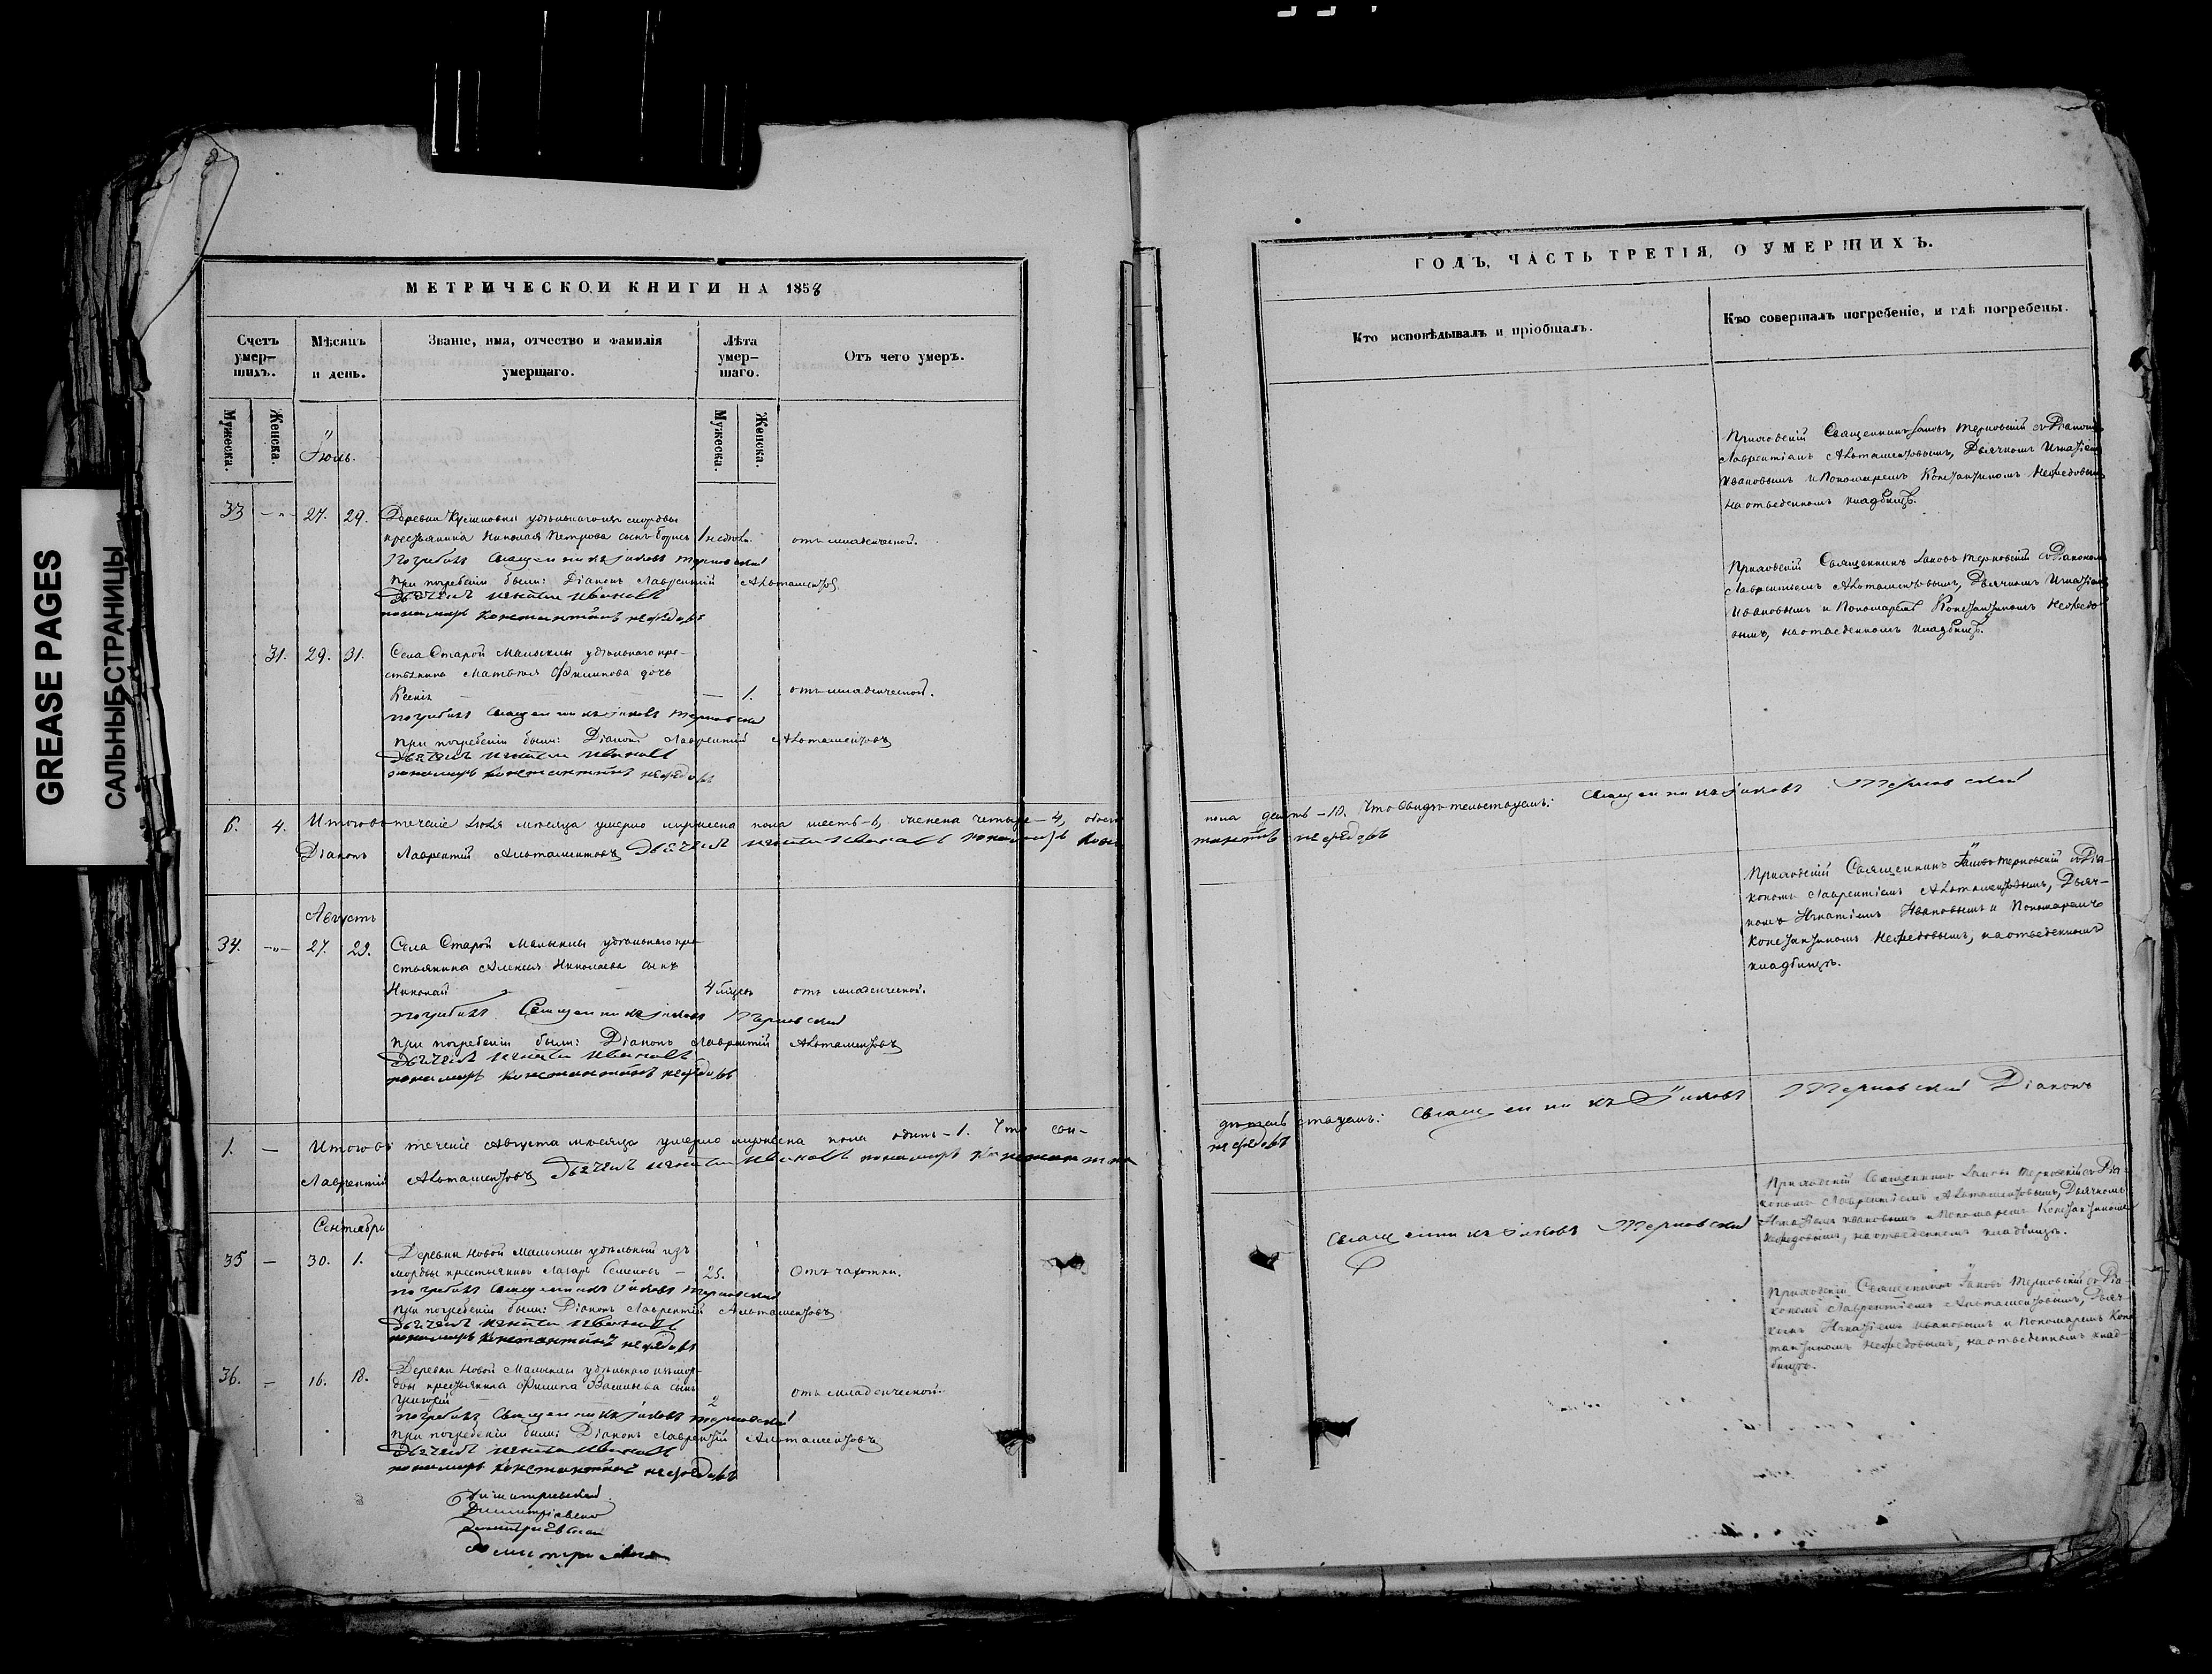 GREASE PAGES
САЛЬНЫЕ СТРАНИЦЫ
МЕТРИЧЕСКОЙ КНИГИ НА 1858
Счетъ умер-
шихъ.
Мѣсяцъ
и день.
Званіе, имя, отчество и фамилія
умершаго.
Лѣта
умер-
шаго.
Отъ чего умеръ.
Мужеска.
Женска.
Мужеска.
Женска.
Іюль.
33 27. 29. Деревни удѣльнаго изъ мордвы
крестьянина Николая Петрова сынъ Борисъ отъ младенческой.
погребалъ Священникъ Іаковъ Терновский
При погребеніи были: Діаконъ Лаврентій Альтаментовъ
Дьячекъ Игнатий Ивановъ
пономарь Константинъ Нефедовъ
31. 29. 31. Села Старой Малыклы удѣльнаго кре-
стьянина Матвѣя Филипова дочь
Ксенія — 1. отъ младенческой.
погребалъ Священникъ Іаковъ Терновский
При погребеніи были: Діаконъ Лаврентій Альтаментовъ
Дьячекъ Игнатий Ивановъ
пономарь Константинъ Нефедовъ
6. 4. Итого въ теченіе Іюля мѣсяца умерло мужеска пола шесть – 6, женска четыре – 4, обоего
Діаконъ Лаврентій Альтаментовъ Дьячекъ Игнатий Ивановъ пономарь Конс
Августъ
34. 27. 29. Села Старой Малыклы удѣльнаго кре-
стьянина Алексѣя Николаева сынъ
Николай 4 мѣсяц. отъ младенческой.
погребалъ Священникъ Іаковъ Терновский
При погребеніи были: Діаконъ Лаврентій Альтаментовъ
Дьячекъ Игнатий Ивановъ
пономарь Константинъ Нефедовъ
1. — Итого въ теченіе Августа мѣсяца умерло мужеска пола одинъ – 1. Что сви-
Лаврентій Альтаментовъ Дьячекъ Игнатий Ивановъ пономарь Константинъ
Сентябрь
35 — 30. 1. Деревни Новой Малыклы удѣльный изъ
мордвы крестьянинъ Лазарь Семеновъ — 25. Отъ чахотки.
погребалъ Священникъ Іаковъ Терновский
При погребеніи были: Діаконъ Лаврентій Альтаментовъ
Дьячекъ Игнатий Ивановъ
пономарь Константинъ Нефедовъ
36. — 16. 18. Деревни Новой Малыклы удѣльнаго изъ мор-
двы крестьянина Филипа Васильева сынъ
Григорій 2 отъ младенческой.
погребалъ Священникъ Іаковъ Терновский
При погребеніи были: Діаконъ Лаврентій Альтаментовъ
Дьячекъ Игнатий Ивановъ
пономарь Константинъ Нефедовъ
ГОДЪ, ЧАСТЬ ТРЕТІЯ, О УМЕРШИХЪ.
Кто исповѣдывалъ и пріобщалъ.
Кто совершалъ погребеніе, и гдѣ погребены.
Приходскій Священникъ Іаковъ Терновскій съ Діакономъ
Лаврентіемъ Альтаментовымъ, Дьячкомъ Игнатіемъ
Ивановымъ и Пономаремъ Константиномъ Нефедовымъ
на отведенномъ кладбищѣ.
Приходскій Священникъ Іаковъ Терновскій съ Діакономъ
Лаврентіемъ Альтаментовымъ, Дьячкомъ Игнатіемъ
Ивановымъ и Пономаремъ Константиномъ Нефедо-
вымъ, на отведенномъ кладбищѣ.
пола десять – 10. Что свидѣтельствуемъ: Священникъ Іаковъ Терновский
тантинъ Нефедовъ
Приходскій Священникъ Іаковъ Терновскій съ Діа-
кономъ Лаврентіемъ Альтаментовымъ, Дьяч-
комъ Игнатіемъ Ивановымъ и Пономаремъ
Константиномъ Нефедовымъ, на отведенномъ
кладбищѣ.
дѣтельствуемъ: Священникъ Іаковъ Терновский Діаконъ
Нефедовъ
Священникъ Іаковъ Терновский
Приходскій Священникъ Іаковъ Терновскій съ Діа-
кономъ Лаврентіемъ Альтаментовымъ, Дьячкомъ
Игнатіемъ Ивановымъ и Пономаремъ Константиномъ
Нефедовымъ, на отведенномъ кладбищѣ.
Приходскій Священникъ Іаковъ Терновскій съ Діа-
кономъ Лаврентіемъ Альтаментовымъ, Дьяч-
комъ Игнатіемъ Ивановымъ и Пономаремъ Конс
тантиномъ Нефедовымъ, на отведенномъ клад-
бищѣ.